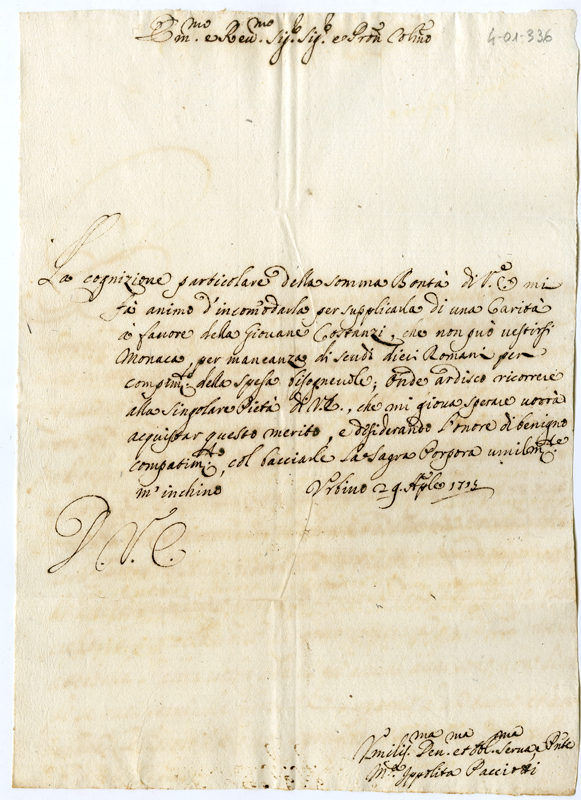 Em.mo e Reu.mo Sig.r Sig.r e Pron Colmo
4-01-336
La cognizione particolare della somma Bontà di V.E. mi
fà animo d'incomodarla per supplicarla di una Carità
à fauore della Giouane Costanzi, che non può uestirsi
Monaca, per mancanza di scudi dieci Romani per
compim.to della spesa bisogneuole; Onde ardisco ricorrere
alla singolare Pietà di V.E., che mi gioua sperare uorrà
acquistar questo merito, e desiderando l'onore di benigno
compatim.to, col bacciarle la Sagra Porpora umilm.te
m'inchino Vrbino 29. Aple 1713
D. V. E.
Vmilis.ma Deu.ma et Obl.ma Serua e
M.a Ippolita Pacciotti